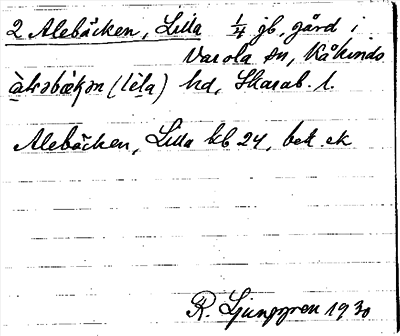 2 Alebäcken, Lilla 1/4 gb. gård i
Varola sn, Kåkinds
àləbækən (lìla) hd, Skarab. l.
Alebäcken, Lilla kb 24, bet. ek
R. Ljunggren 1930